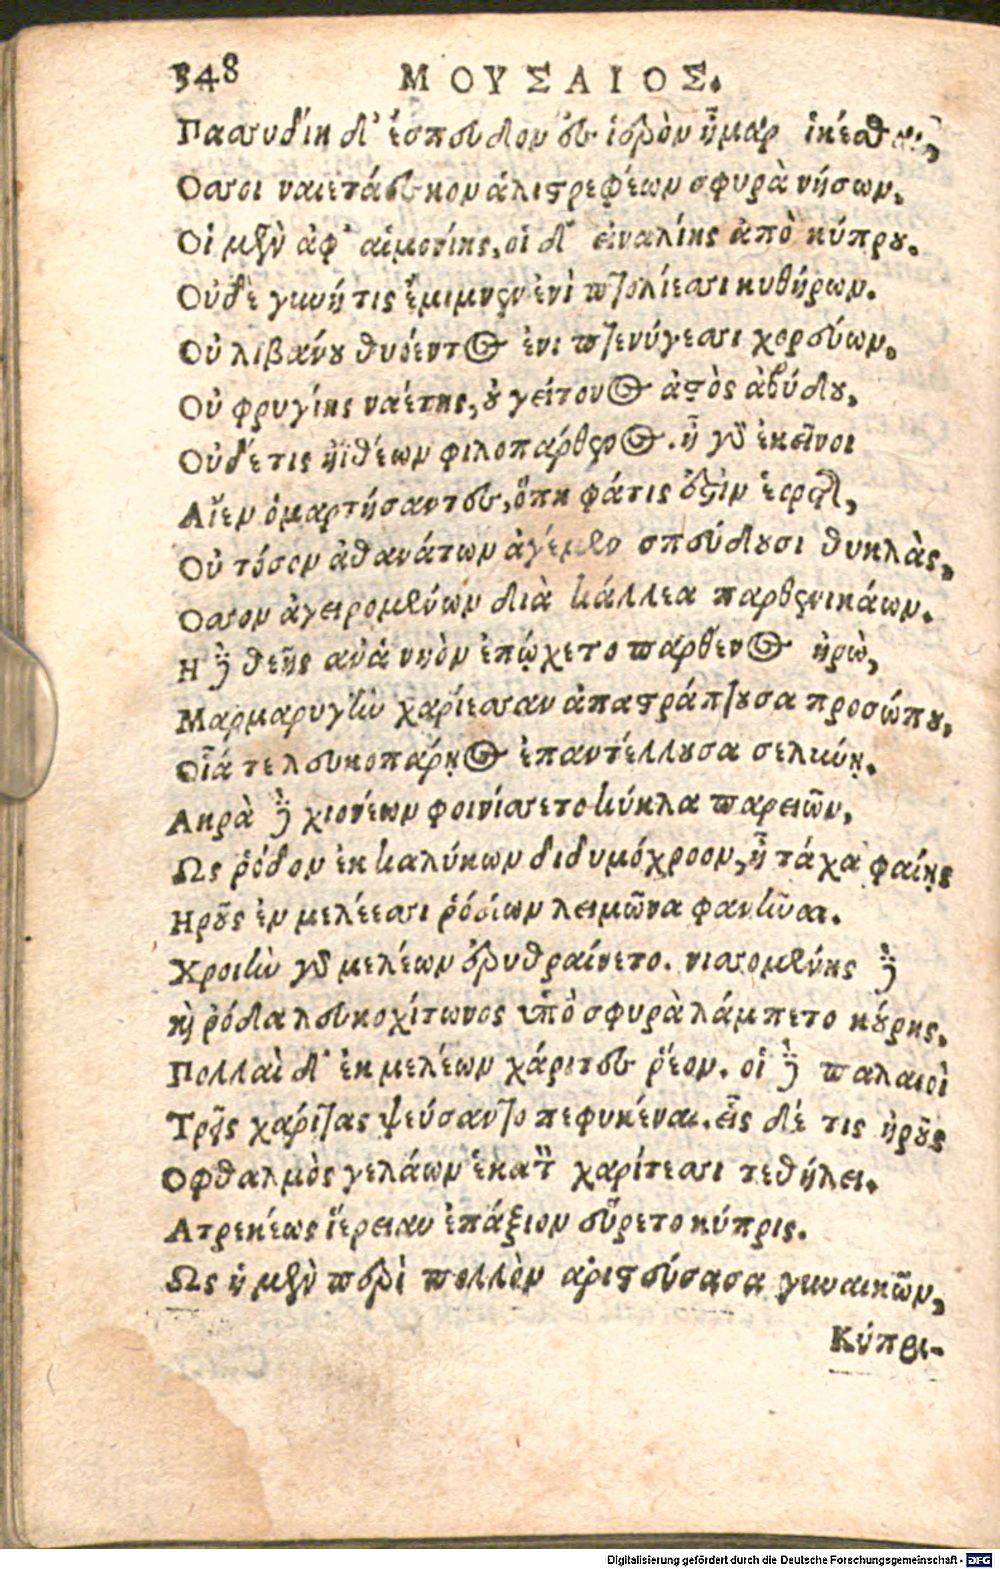 348 ΜΟΥΣΑΙΟΣ.
Πασσυδίῃ δ' ἔσπευδον ἐς ἱερὸν ἦμαρ ἱκέσθαι,
Ὅσσοι ναιετάεσκον ἁλιστρεφέων σφυρὰ νήσων.
Οἱ μὲν ἀφ' αἱμονίης, οἱ δ' εἰναλίης ἀπὸ κύπρου.
Οὐδὲ γυνή τις ἔμιμνεν ἐνὶ πτολίεσσι κυθήρων.
Οὐ λιβάνου θυόεντος ἐνι πτερύγεσσι χορεύων,
Οὐ φρυγίης ναέτης, οὐ γείτονος ἀστὸς ἀβύδου,
Οὐδέ τις ἠϊθέων φιλοπάρθενος. ἦ γὰρ ἐκεῖνοι
Αἰὲν ὁμαρτήσαντες, ὅπη φάτις ἐστὶν ἑορτῆς,
Οὐ τόσον ἀθανάτων ἀγέμεν σπεύδουσι θυηλὰς,
Ὅσσον ἀγειρομένων διὰ κάλλεα παρθενικάων.
Ἡ δὲ θεῆς ἀνὰ νηὸν ἐπῴχετο παρθένος ἡρὼ,
Μαρμαρυγὴν χαρίεσσαν ἀπαστράπτουσα προσώπου,
Οἷά τε λευκοπάρῃος ἐπαντέλλουσα σελήνη.
Ἄκρα δὲ χιονέων φοινίσσετο κύκλα παρειῶν,
Ὡς ῥόδον ἐκ καλύκων διδυμόχροον, ἦ τάχα φαίης
Ἡροῦς ἐν μελέεσσι ῥόδων λειμῶνα φανῆναι.
Χροιὴν γὰρ μελέων ἐρυθραίνετο. νισσομένης δὲ
καὶ ῥόδα λευκοχίτωνος ὑπὸ σφυρὰ λάμπετο κούρης,
Πολλαὶ δ' ἐκ μελέων χάριτες ῥέον. οἱ δὲ παλαιοὶ
Τρεῖς χάριτας ψεύσαντο πεφυκέναι. εἷς δέ τις ἡροῦς
Ὀφθαλμὸς γελάων ἑκατὸν χαρίτεσσι τεθήλει.
Ἀτρεκέως ἱέρειαν ἐπάξιον εὕρετο κύπρις.
Ὡς ἡ μὲν περὶ πολλὸν ἀριστεύσασα γυναικῶν,
Κύπρι-
Digitalisierung gefördert durch die Deutsche Forschungsgemeinschaft - DFG